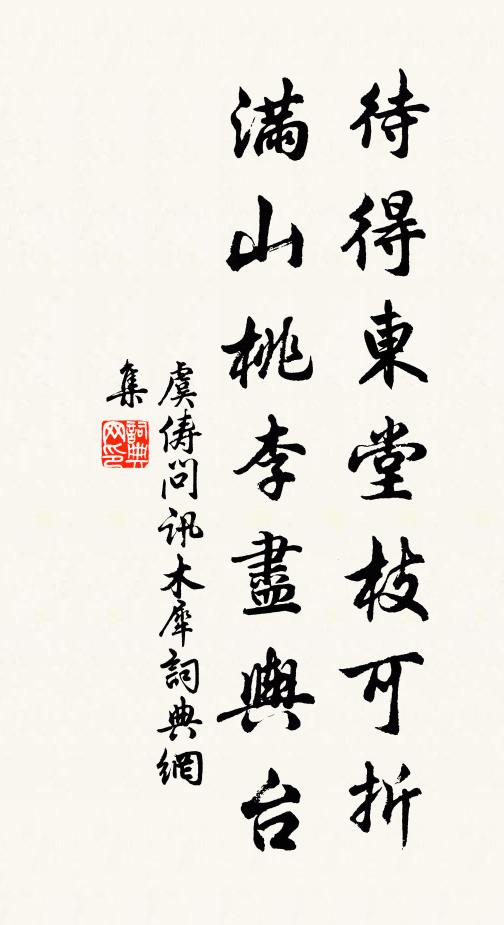 待得東堂枝可折
滿山桃李盡輿台
虞儔問訊木犀詞典網
集
詞典
网印